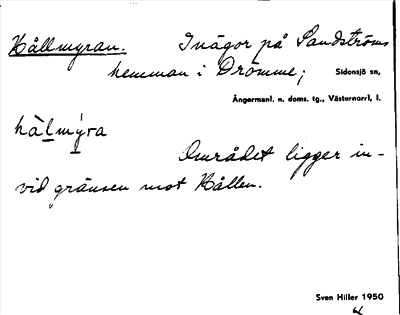 Hållmyran. Inägor på Sandströms
hemman i Drömme; Sidensjö sn,
Ångermanl. n. doms. tg., Västernorrl. l.
hålmýra
Området ligger in-
vid gränsen mot Hållen.
Sven Hiller 1950
4